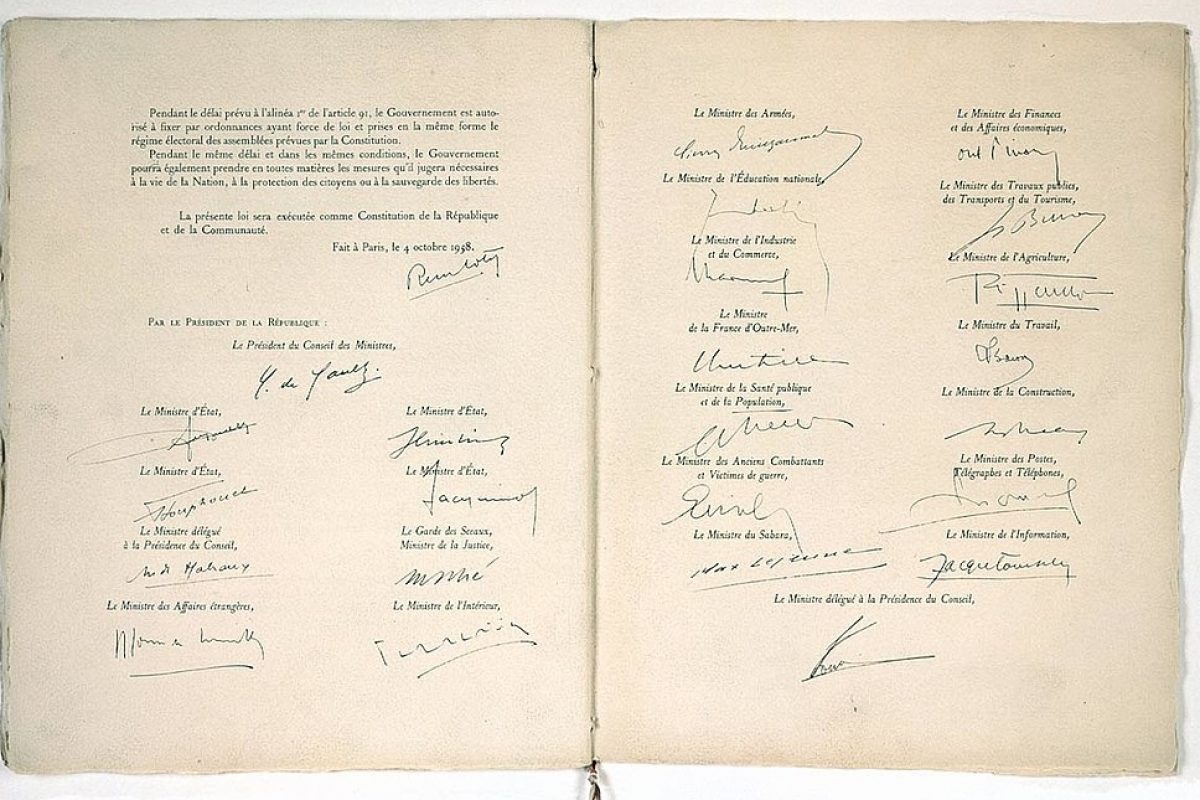 Pendant le délai prévu à l'alinéa 1er de l'article 91, le Gouvernement est auto-
risé à fixer par ordonnances ayant force de loi et prises en la même forme le
régime électoral des assemblées prévues par la Constitution.
Pendant le même délai et dans les mêmes conditions, le Gouvernement
pourra également prendre en toutes matières les mesures qu'il jugera nécessaires
à la vie de la Nation, à la protection des citoyens ou à la sauvegarde des libertés.
La présente loi sera exécutée comme Constitution de la République
et de la Communauté.
Fait à Paris, le 4 octobre 1958.
Par le Président de la République :
Le Président du Conseil des Ministres,
G. de Gaulle.
Le Ministre d'État,
Le Ministre d'État,
Le Ministre d'État,
Le Ministre d'État,
Houphouet
Jacquinot
Le Ministre délégué
à la Présidence du Conseil,
Le Garde des Sceaux,
Ministre de la Justice,
Malraux
Le Ministre des Affaires étrangères,
Le Ministre de l'Intérieur,
Le Ministre des Armées,
Le Ministre de l'Éducation nationale,
Le Ministre de l'Industrie
et du Commerce,
Le Ministre
de la France d'Outre-Mer,
Le Ministre de la Santé publique
et de la Population,
Le Ministre des Anciens Combattants
et Victimes de guerre,
Le Ministre du Sahara,
Max Lejeune
Le Ministre des Finances
et des Affaires économiques,
Le Ministre des Travaux publics,
des Transports et du Tourisme,
Le Ministre de l'Agriculture,
Le Ministre du Travail,
Le Ministre de la Construction,
Le Ministre des Postes,
Télégraphes et Téléphones,
Le Ministre de l'Information,
Le Ministre délégué à la Présidence du Conseil,